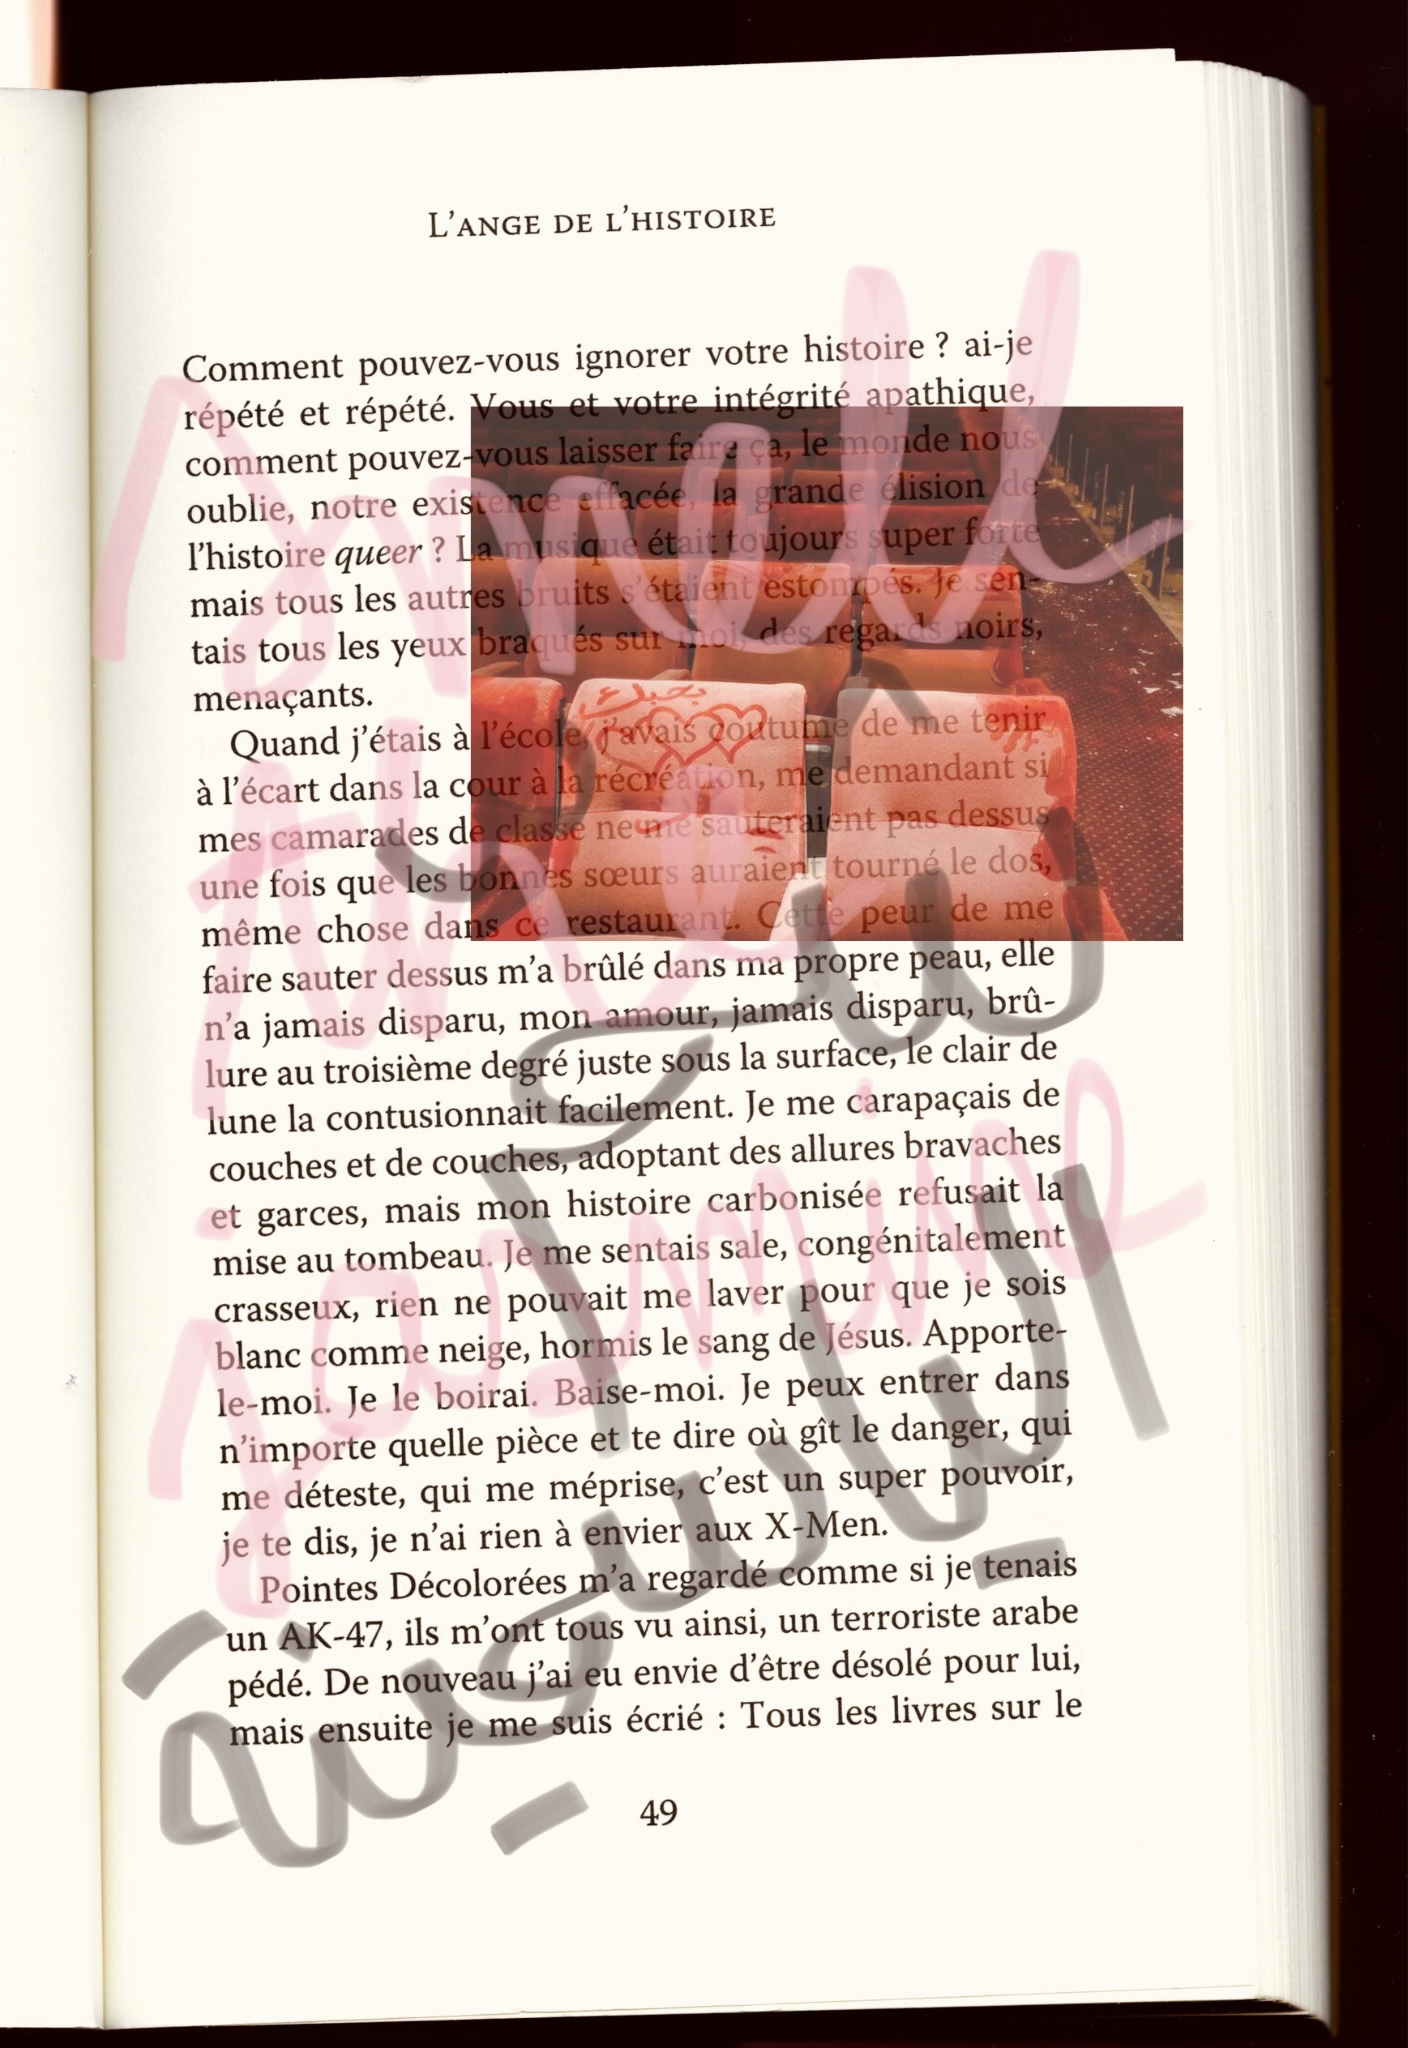 L'ANGE DE L'HISTOIRE
Comment pouvez-vous ignorer votre histoire ? ai-je
répété et répété. Vous et votre intégrité apathique,
comment pouvez-vous laisser faire ça, le monde nous
oublie, notre existence effacée, la grande élision de
l'histoire queer ? La musique était toujours super forte
mais tous les autres bruits s'étaient estompés. Je sen-
tais tous les yeux braqués sur moi, des regards noirs,
menaçants.
Quand j'étais à l'école, j'avais coutume de me tenir
à l'écart dans la cour à la récréation, me demandant si
mes camarades de classe ne me sauteraient pas dessus
une fois que les bonnes sœurs auraient tourné le dos,
même chose dans ce restaurant. Cette peur de me
faire sauter dessus m'a brûlé dans ma propre peau, elle
n'a jamais disparu, mon amour, jamais disparu, brû-
lure au troisième degré juste sous la surface, le clair de
lune la contusionnait facilement. Je me carapaçais de
couches et de couches, adoptant des allures bravaches
et garces, mais mon histoire carbonisée refusait la
mise au tombeau. Je me sentais sale, congénitalement
crasseux, rien ne pouvait me laver pour que je sois
blanc comme neige, hormis le sang de Jésus. Apporte-
le-moi. Je le boirai. Baise-moi. Je peux entrer dans
n'importe quelle pièce et te dire où gît le danger, qui
me déteste, qui me méprise, c'est un super pouvoir,
je te dis, je n'ai rien à envier aux X-Men.
Pointes Décolorées m'a regardé comme si je tenais
un AK-47, ils m'ont tous vu ainsi, un terroriste arabe
pédé. De nouveau j'ai eu envie d'être désolé pour lui,
mais ensuite je me suis écrié : Tous les livres sur le
49
smell
the
jasmine
الياسمينة
بحبك